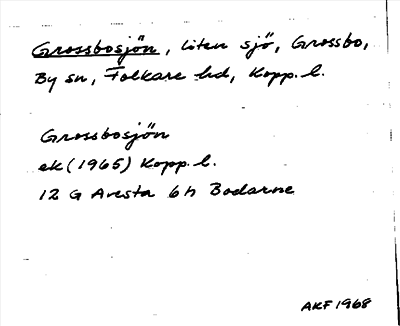 Grossbosjön, liten sjö, Grossbo,
By sn, Folkare hd, Kopp. l.
Grossbosjön
ek (1965) Kopp. l.
12 G Avesta 6h Bodarne
AKF 1968